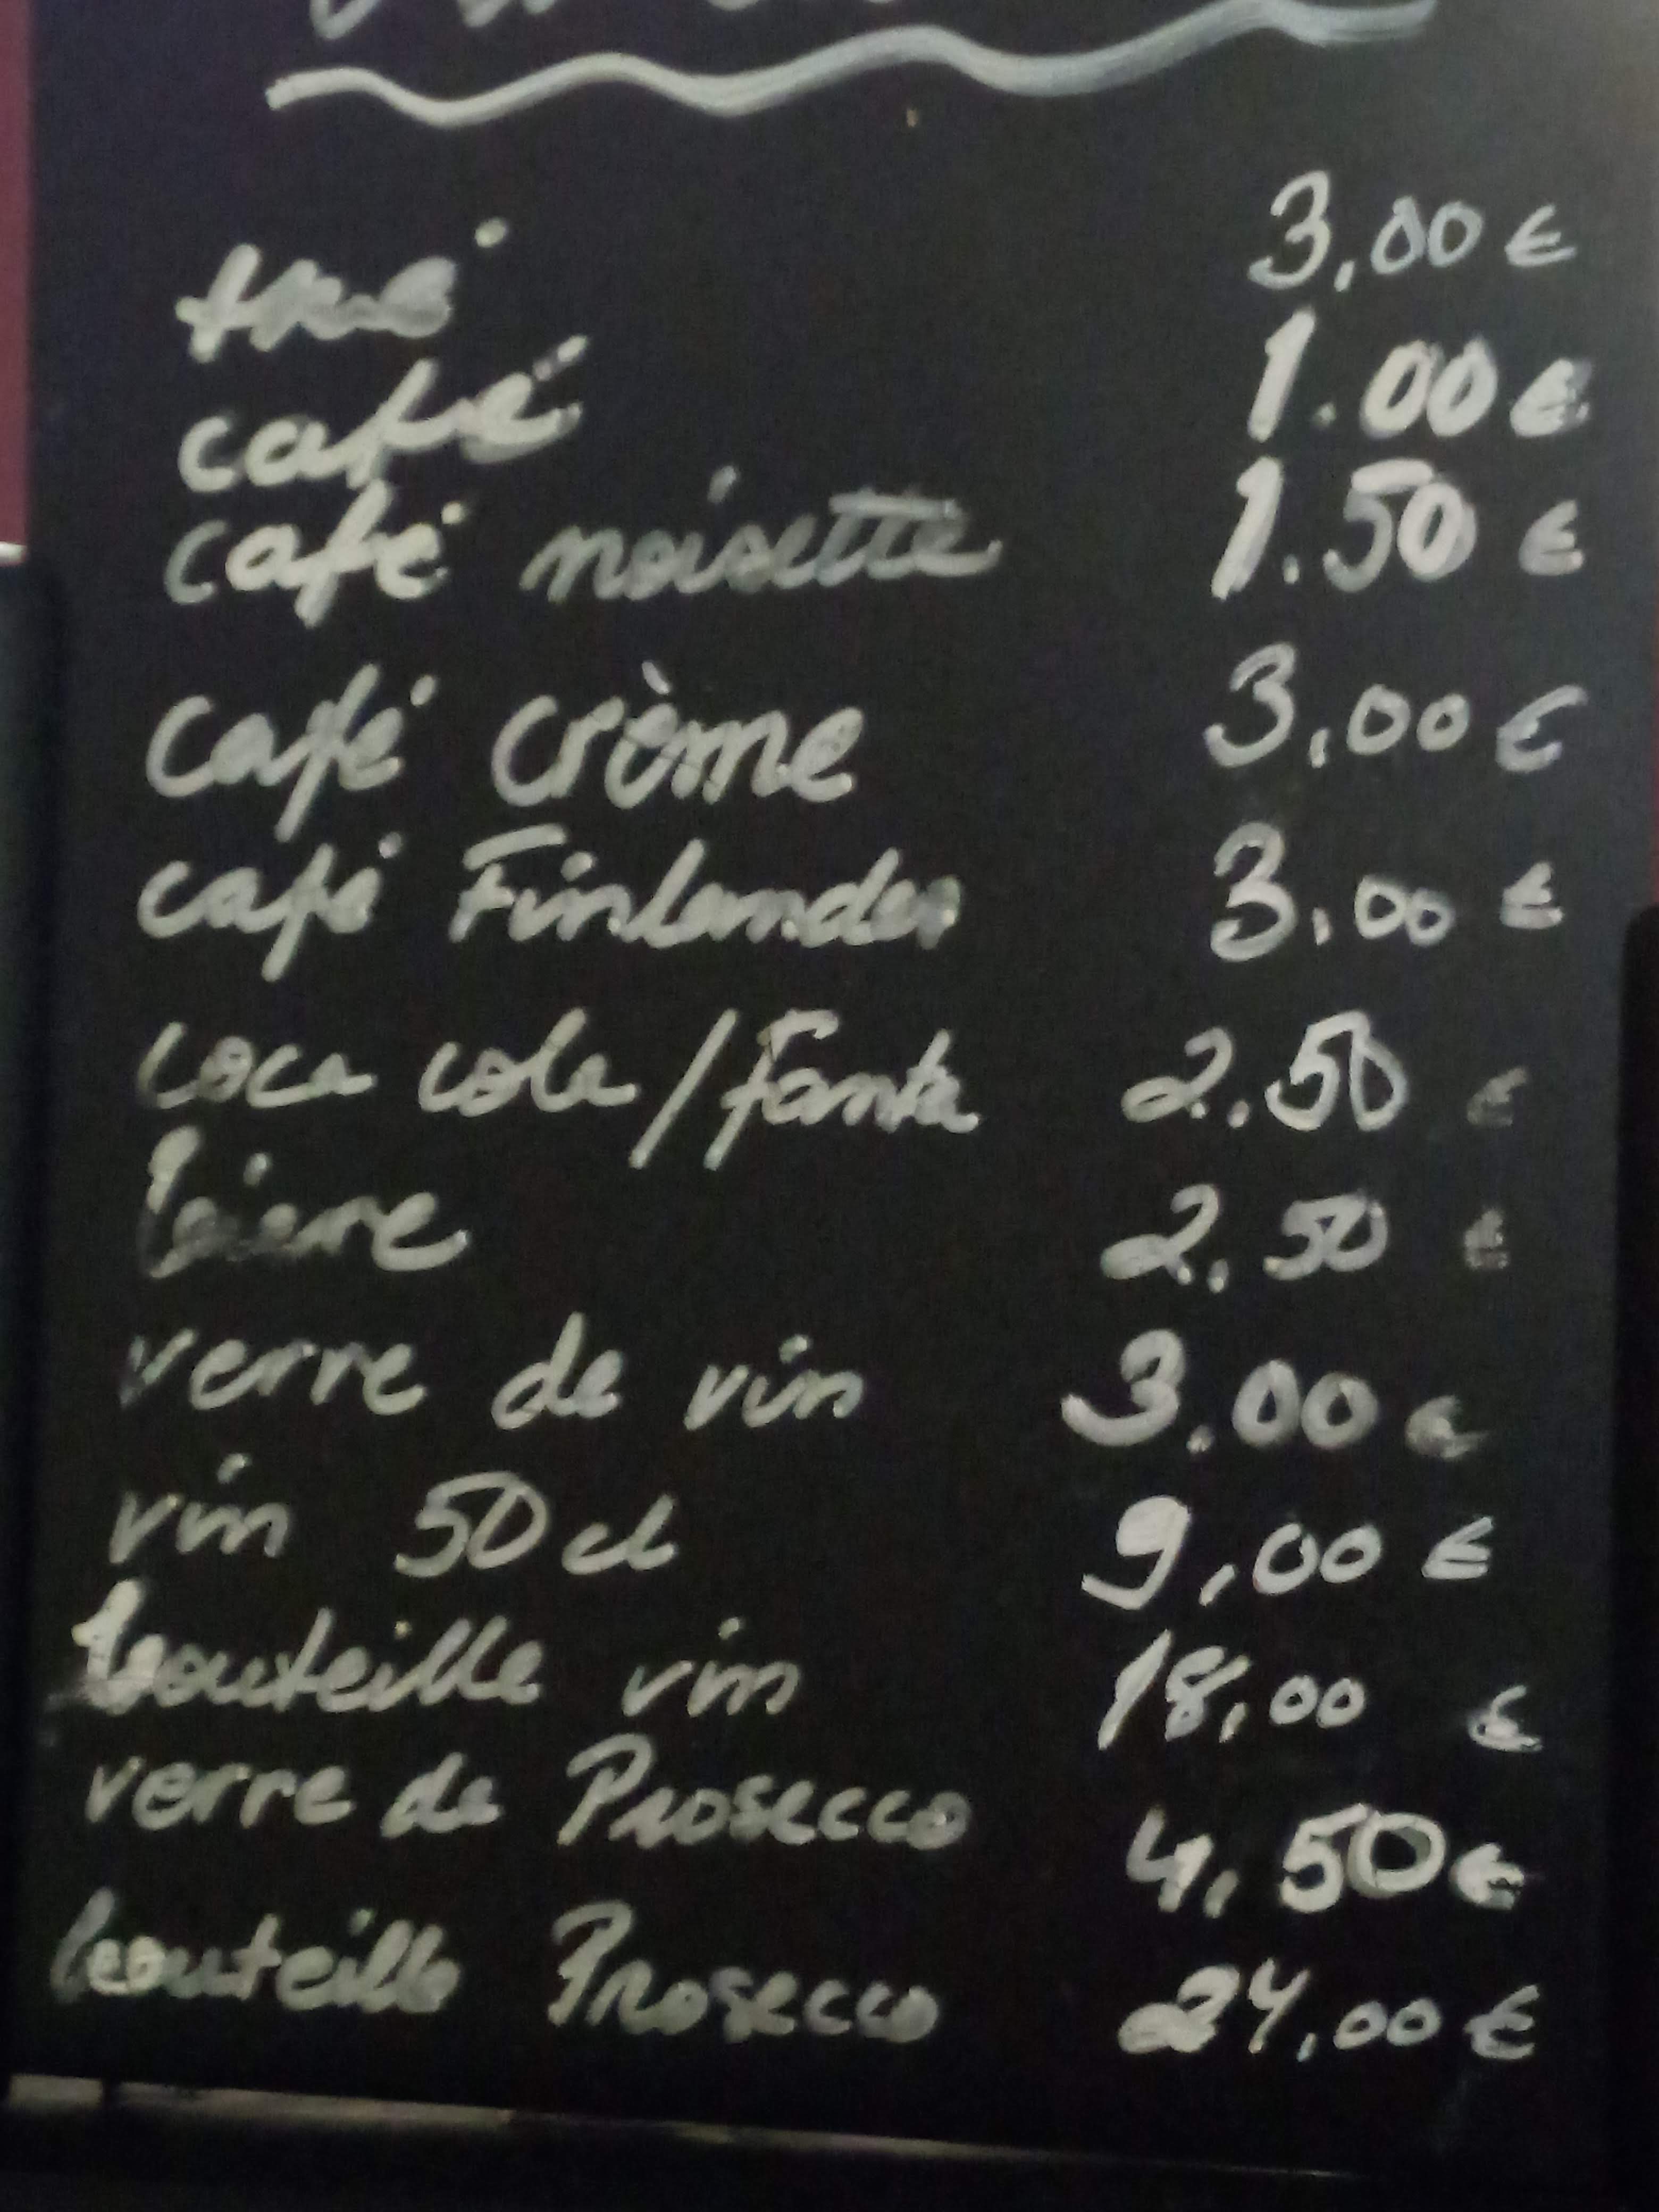 thé 3,00 €
café 1.00 €
café noisette 1.50 €
café crème 3,00 €
café Finlandes 3,00 €
coca cola / Fanta 2.50 €
bière 2,50 €
verre de vin 3.00 €
vin 50 cl 9,00 €
bouteille vin 18,00 €
verre de Prosecco 4,50 €
bouteille Prosecco 24,00 €